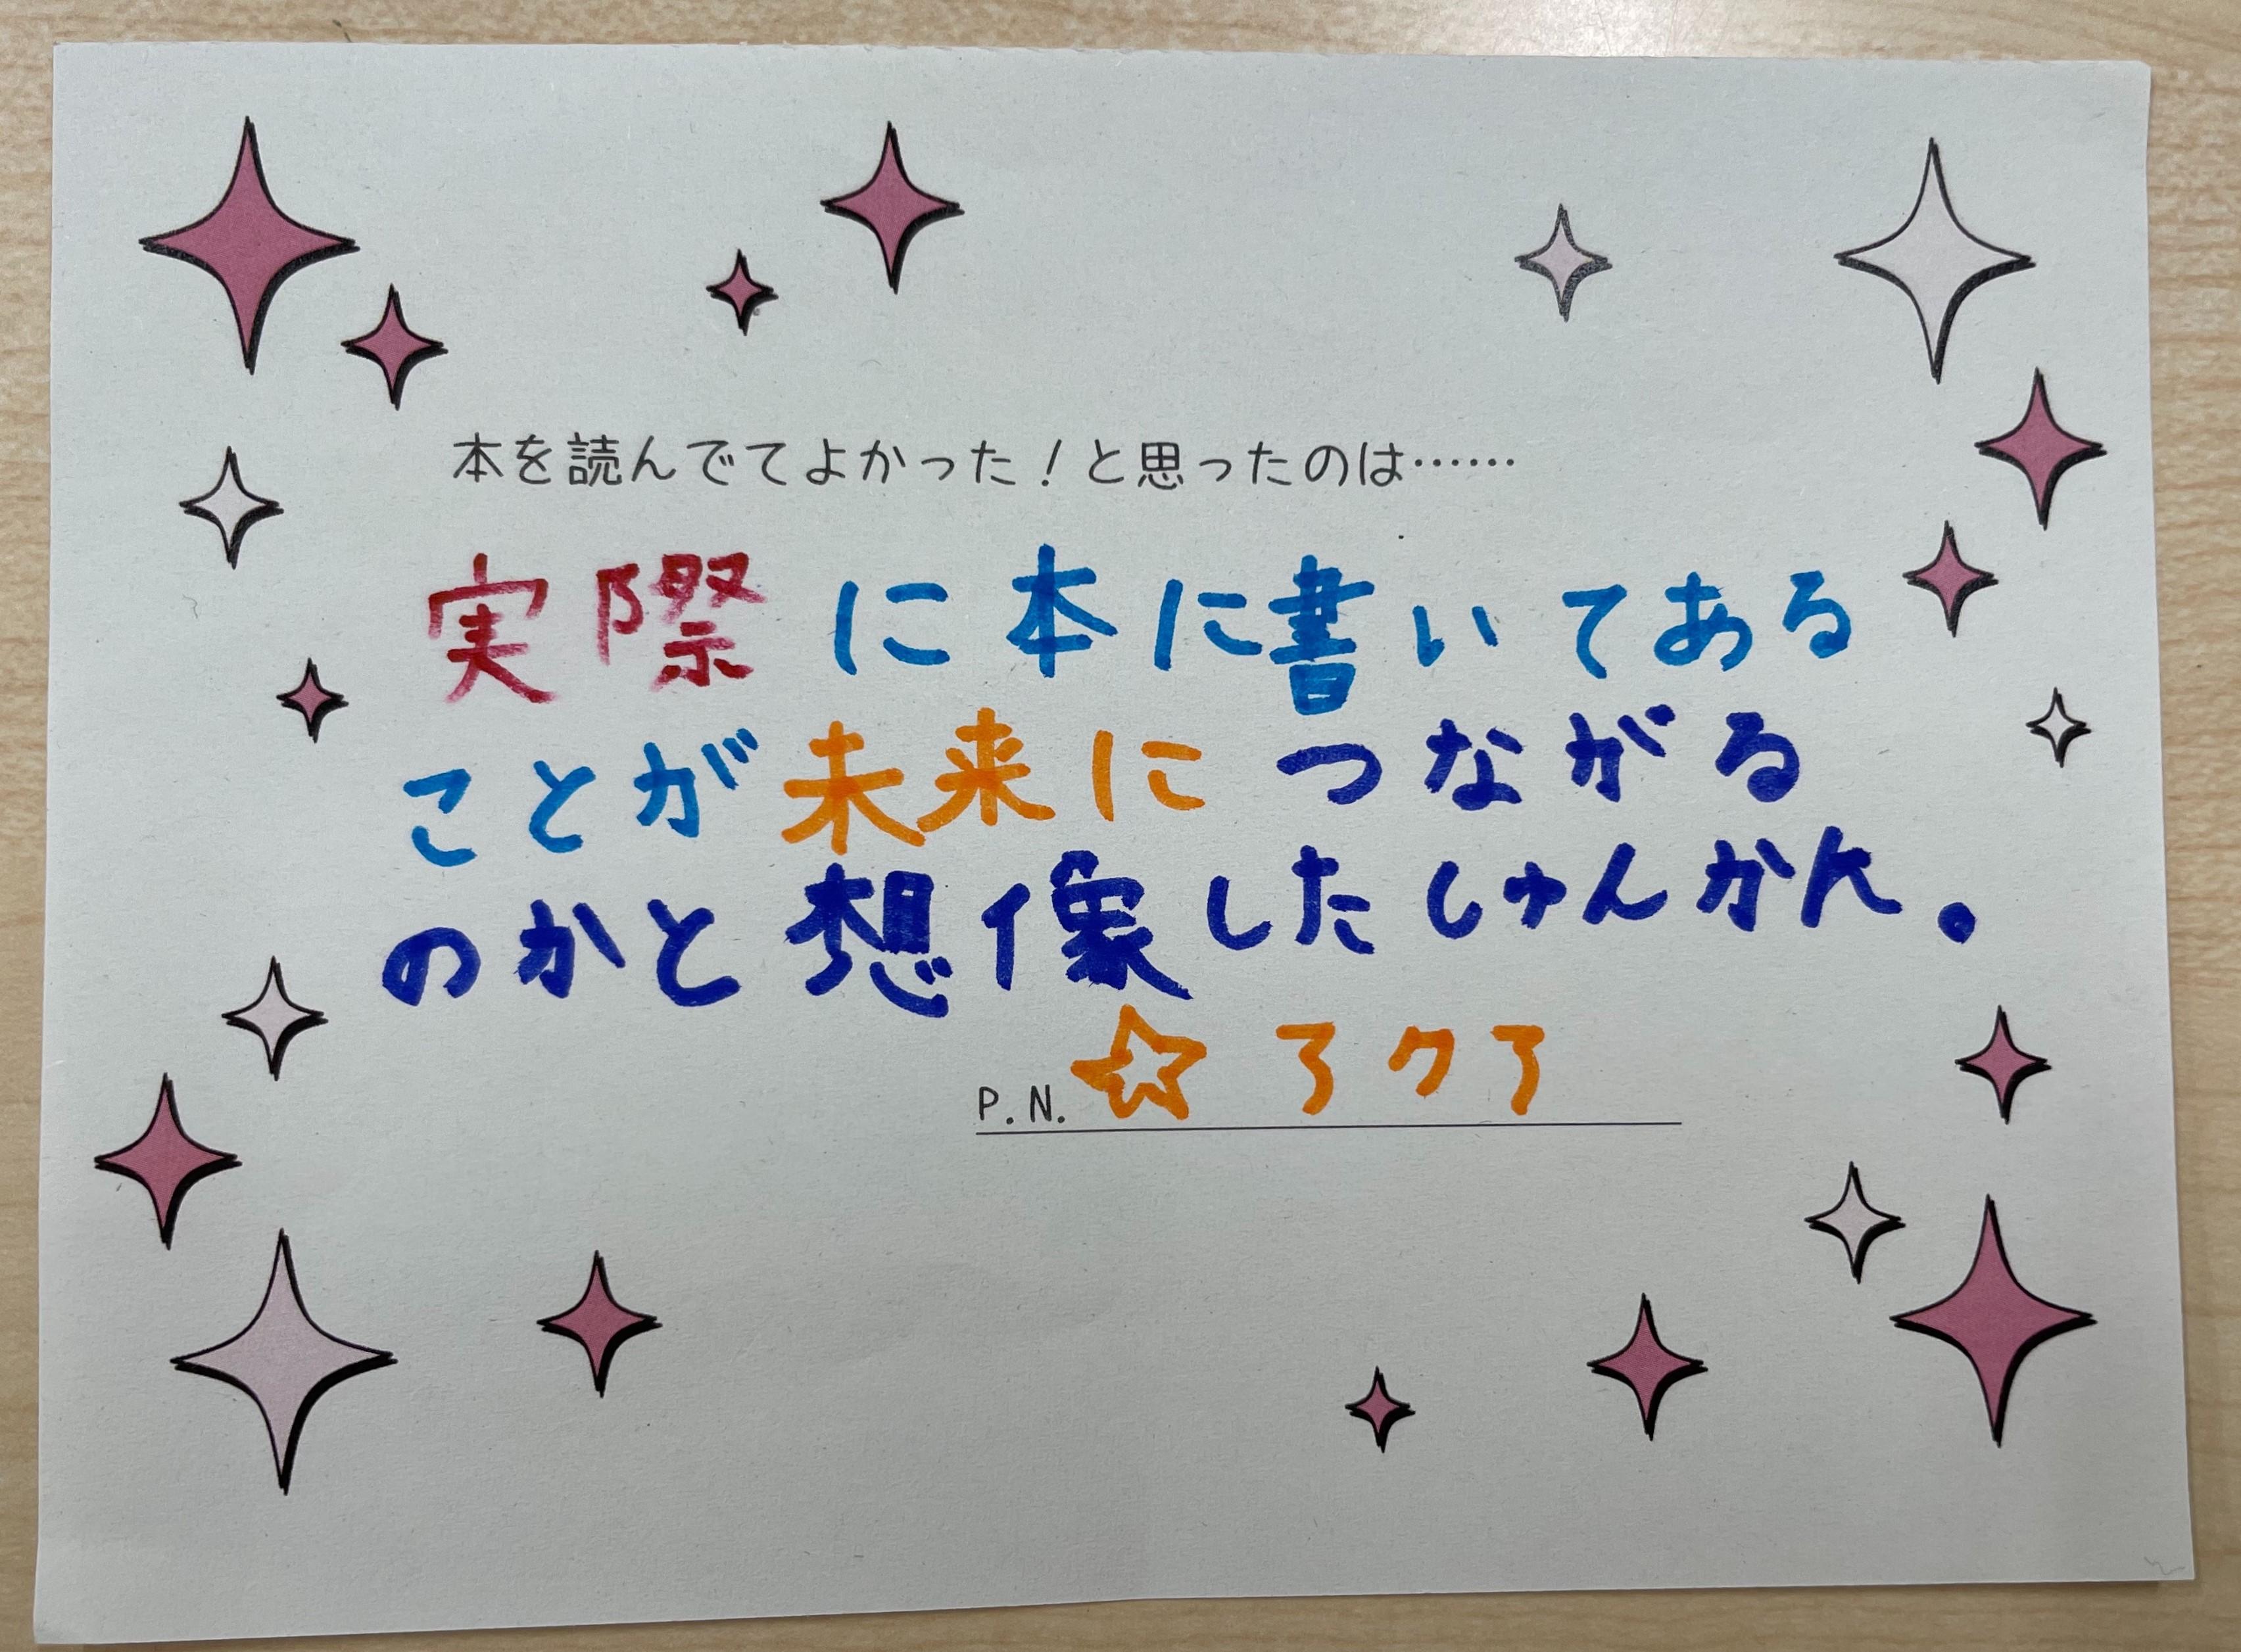 本を読んでてよかった！と思ったのは……
実際に本に書いてある
ことが未来につながる
のかと想像したしゅんかん。
P.N. ☆アクア